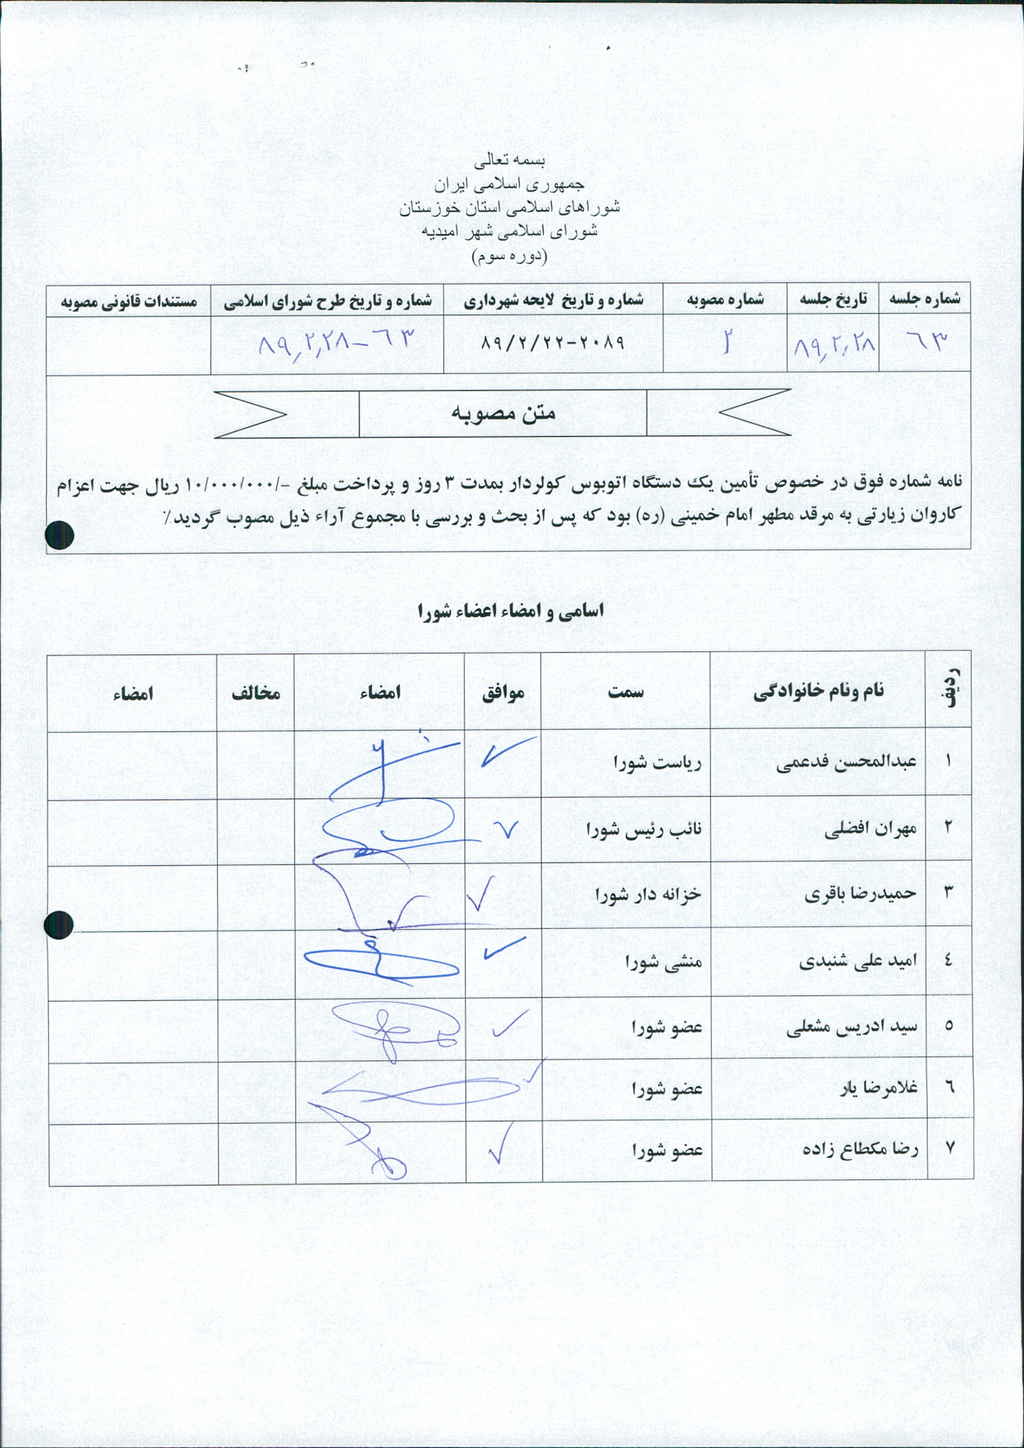 بسمه تعالی
جمهوری اسلامی ایران
شوراهای اسلامی استان خوزستان
شورای اسلامی شهر امیدیه
(دوره سوم)
شماره جلسه تاریخ جلسه شماره مصوبه شماره و تاریخ لایحه شهرداری شماره و تاریخ طرح شورای اسلامی مستندات قانونی مصوبه
٦٣ ٨٩,٢,٢٨ ٢ ٨٩/٢/٢٢-٢٠٨٩ ٦٣-٨٩,٢,٢٨
متن مصوبه
نامه شماره فوق در خصوص تأمین یک دستگاه اتوبوس کولردار بمدت ٣ روز و پرداخت مبلغ -/١٠/٠٠٠/٠٠٠ ریال جهت اعزام
کاروان زیارتی به مرقد مطهر امام خمینی (ره) بود که پس از بحث و بررسی با مجموع آراء ذیل مصوب گردید٪
اسامی و امضاء اعضاء شورا
ردیف نام ونام خانوادگی سمت موافق امضاء مخالف امضاء
١ عبدالمحسن فدعمی ریاست شورا ✓
٢ مهران افضلی نائب رئیس شورا ✓
٣ حمیدرضا باقری خزانه دار شورا ✓
٤ امید علی شنبدی منشی شورا ✓
٥ سید ادریس مشعلی عضو شورا ✓
٦ غلامرضا یار عضو شورا ✓
٧ رضا مکطاع زاده عضو شورا ✓